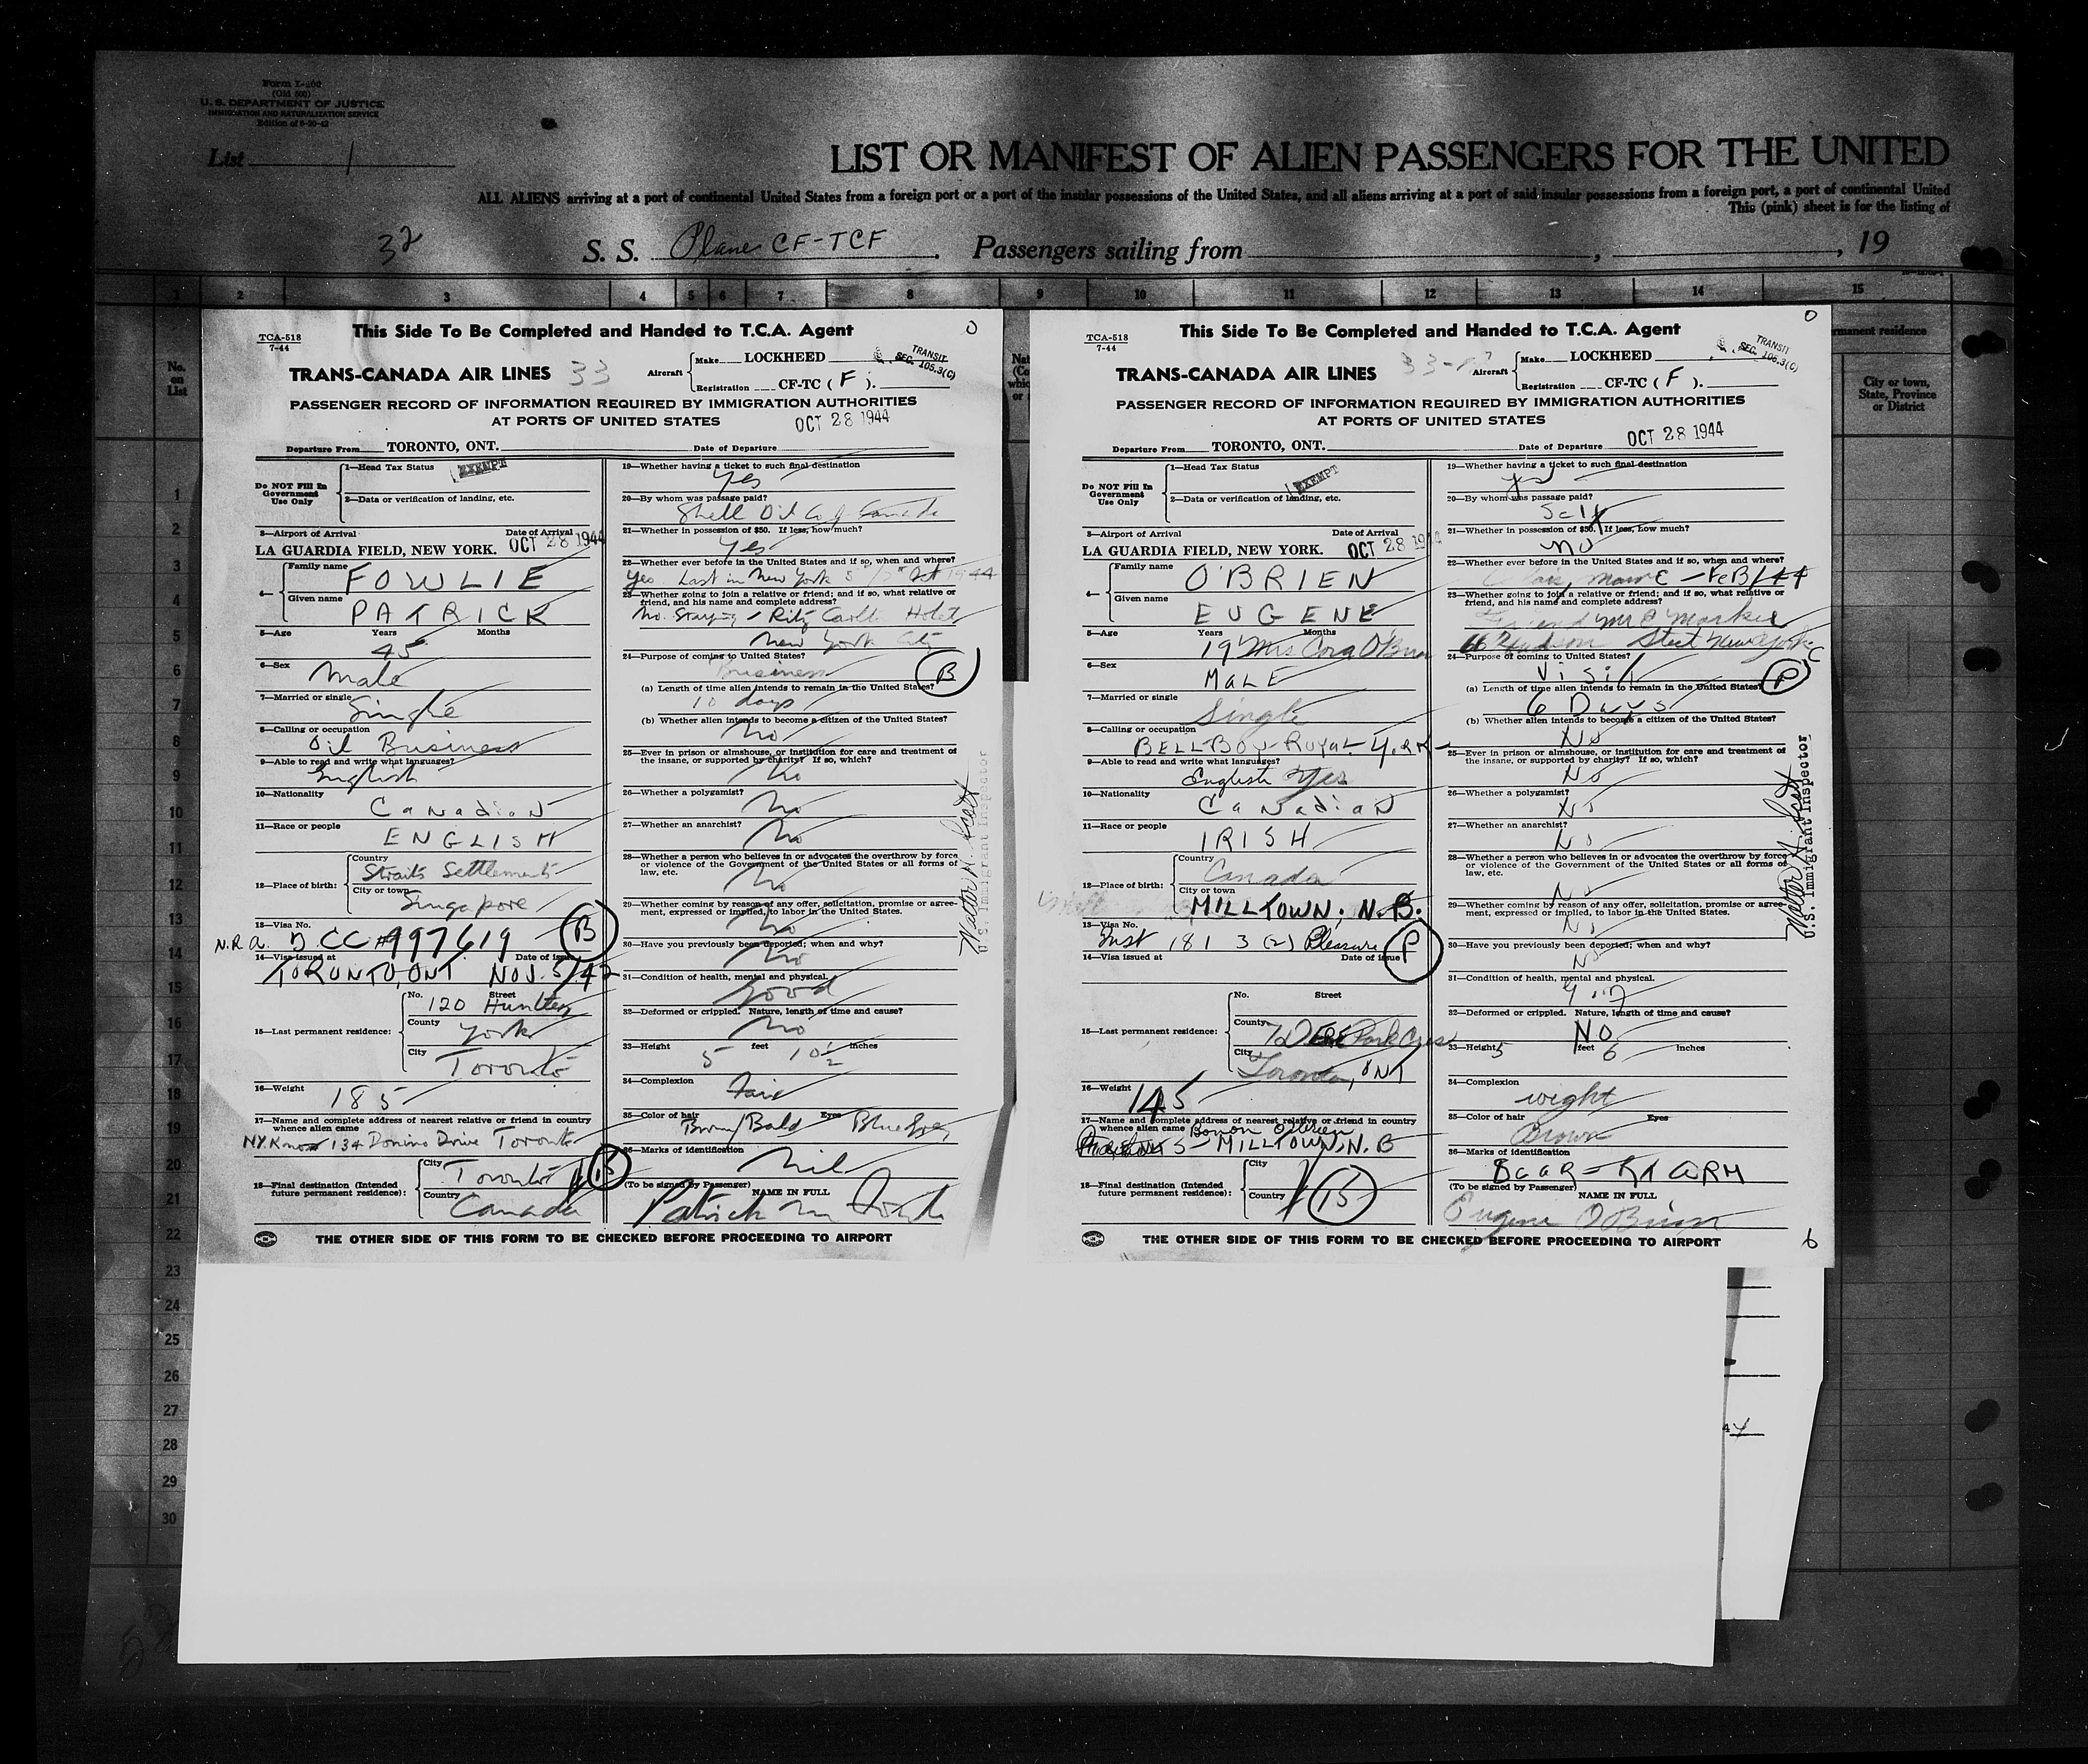 Form I-466
(Old 500)
U. S. DEPARTMENT OF JUSTICE
IMMIGRATION AND NATURALIZATION SERVICE
Edition of 8-20-42
List 1
LIST OR MANIFEST OF ALIEN PASSENGERS FOR THE UNITED
ALL ALIENS arriving at a port of continental United States from a foreign port or a port of the insular possessions of the United States, and all aliens arriving at a port of said insular possessions from a foreign port, a port of continental United
This (pink) sheet is for the listing of
32
S. S. Plane CF-TCF. Passengers sailing from , , 19
1 2 3 4 5 6 7 8 9 10 11 12 13 14 15
No. on List
1
2
3
4
5
6
7
8
9
10
11
12
13
14
15
16
17
18
19
20
21
22
23
24
25
26
27
28
29
30
rmanent residence
City or town, State, Province or District
TCA-518
7-44
This Side To Be Completed and Handed to T.C.A. Agent
0
TRANSIT
SEC. 105.3(C)
TRANS-CANADA AIR LINES 33
Aircraft Make LOCKHEED
Registration CF-TC ( F ).
PASSENGER RECORD OF INFORMATION REQUIRED BY IMMIGRATION AUTHORITIES
AT PORTS OF UNITED STATES
OCT 28 1944
Departure From TORONTO, ONT. Date of Departure
Do NOT Fill In Government Use Only
1—Head Tax Status EXEMPT
2—Data or verification of landing, etc.
3—Airport of Arrival Date of Arrival
LA GUARDIA FIELD, NEW YORK. OCT 28 1944
4— Family name FOWLIE
Given name PATRICK
5—Age Years Months
45
6—Sex
Male
7—Married or single
Single
8—Calling or occupation
Oil Business
9—Able to read and write what languages?
English
10—Nationality
Canadian
11—Race or people
ENGLISH
12—Place of birth: Country
Straits Settlements
City or town
Singapore
13—Visa No. B
N.R.A. CC #997619
14—Visa issued at Date of issue
TORONTO, ONT. NOV. 5/42
15—Last permanent residence: No. Street
120 Huntley
County
York
City
Toronto
16—Weight
185
17—Name and complete address of nearest relative or friend in country whence alien came
134 Toronto
18—Final destination (Intended future permanent residence): City
Toronto
Country
Canada
19—Whether having a ticket to such final destination
Yes
20—By whom was passage paid?
Shell Oil Co of Canada
21—Whether in possession of $50. If less, how much?
Yes
22—Whether ever before in the United States and if so, when and where?
Yes Last in New York Oct 1944
23—Whether going to join a relative or friend; and if so, what relative or friend, and his name and complete address?
No. Staying Ritz Carlton Hotel
New York City
24—Purpose of coming to United States?
Business B
(a) Length of time alien intends to remain in the United States?
10 days
(b) Whether alien intends to become a citizen of the United States?
No
25—Ever in prison or almshouse, or institution for care and treatment of the insane, or supported by charity? If so, which?
No
26—Whether a polygamist?
No
27—Whether an anarchist?
No
28—Whether a person who believes in or advocates the overthrow by force or violence of the Government of the United States or all forms of law, etc.
No
29—Whether coming by reason of any offer, solicitation, promise or agreement, expressed or implied, to labor in the United States.
No
30—Have you previously been deported; when and why?
No
31—Condition of health, mental and physical.
Good
32—Deformed or crippled. Nature, length of time and cause?
No
33—Height 5 feet 10½ inches
34—Complexion
Fair
35—Color of hair Eyes
Brown/Bald Blue Grey
36—Marks of identification
Nil
(To be signed by Passenger) NAME IN FULL
Patrick M Fowlie
Walter H. Scott
U.S. Immigrant Inspector
THE OTHER SIDE OF THIS FORM TO BE CHECKED BEFORE PROCEEDING TO AIRPORT
TCA-518
7-44
This Side To Be Completed and Handed to T.C.A. Agent
0
TRANSIT
SEC. 105.3(C)
TRANS-CANADA AIR LINES
Aircraft Make LOCKHEED
Registration CF-TC ( F ).
PASSENGER RECORD OF INFORMATION REQUIRED BY IMMIGRATION AUTHORITIES
AT PORTS OF UNITED STATES
OCT 28 1944
Departure From TORONTO, ONT. Date of Departure
Do NOT Fill In Government Use Only
1—Head Tax Status EXEMPT
2—Data or verification of landing, etc.
3—Airport of Arrival Date of Arrival
LA GUARDIA FIELD, NEW YORK. OCT 28 1944
4— Family name O'BRIEN
Given name EUGENE
5—Age Years Months
19 Mrs Cora O'Brien
6—Sex
MALE
7—Married or single
Single
8—Calling or occupation
BELLBOY-ROYAL YORK
9—Able to read and write what languages?
English Yes
10—Nationality
Canadian
11—Race or people
IRISH
12—Place of birth: Country
Canada
City or town
MILLTOWN, N.B.
13—Visa No.
181 3 (2) Pleasure P
14—Visa issued at Date of issue
15—Last permanent residence: No. Street
County
7 Deer Park Cres
City
Toronto, ONT
16—Weight
145
17—Name and complete address of nearest relative or friend in country whence alien came
MILLTOWN, N. B
18—Final destination (Intended future permanent residence): City
Country
19—Whether having a ticket to such final destination
yes
20—By whom was passage paid?
Self
21—Whether in possession of $50. If less, how much?
no
22—Whether ever before in the United States and if so, when and where?
Calais, Maine - FEB/44
23—Whether going to join a relative or friend; and if so, what relative or friend, and his name and complete address?
Friend Mr
Hudson Street New York
24—Purpose of coming to United States?
Visit P
(a) Length of time alien intends to remain in the United States?
6 Days
(b) Whether alien intends to become a citizen of the United States?
No
25—Ever in prison or almshouse, or institution for care and treatment of the insane, or supported by charity? If so, which?
No
26—Whether a polygamist?
No
27—Whether an anarchist?
No
28—Whether a person who believes in or advocates the overthrow by force or violence of the Government of the United States or all forms of law, etc.
No
29—Whether coming by reason of any offer, solicitation, promise or agreement, expressed or implied, to labor in the United States.
No
30—Have you previously been deported; when and why?
No
31—Condition of health, mental and physical.
32—Deformed or crippled. Nature, length of time and cause?
NO
33—Height 5 feet 6 inches
34—Complexion
wight
35—Color of hair Eyes
Brown
36—Marks of identification
SCAR - RT ARM
(To be signed by Passenger) NAME IN FULL
Eugene O'Brien
Walter H. Scott
U.S. Immigrant Inspector
THE OTHER SIDE OF THIS FORM TO BE CHECKED BEFORE PROCEEDING TO AIRPORT
6